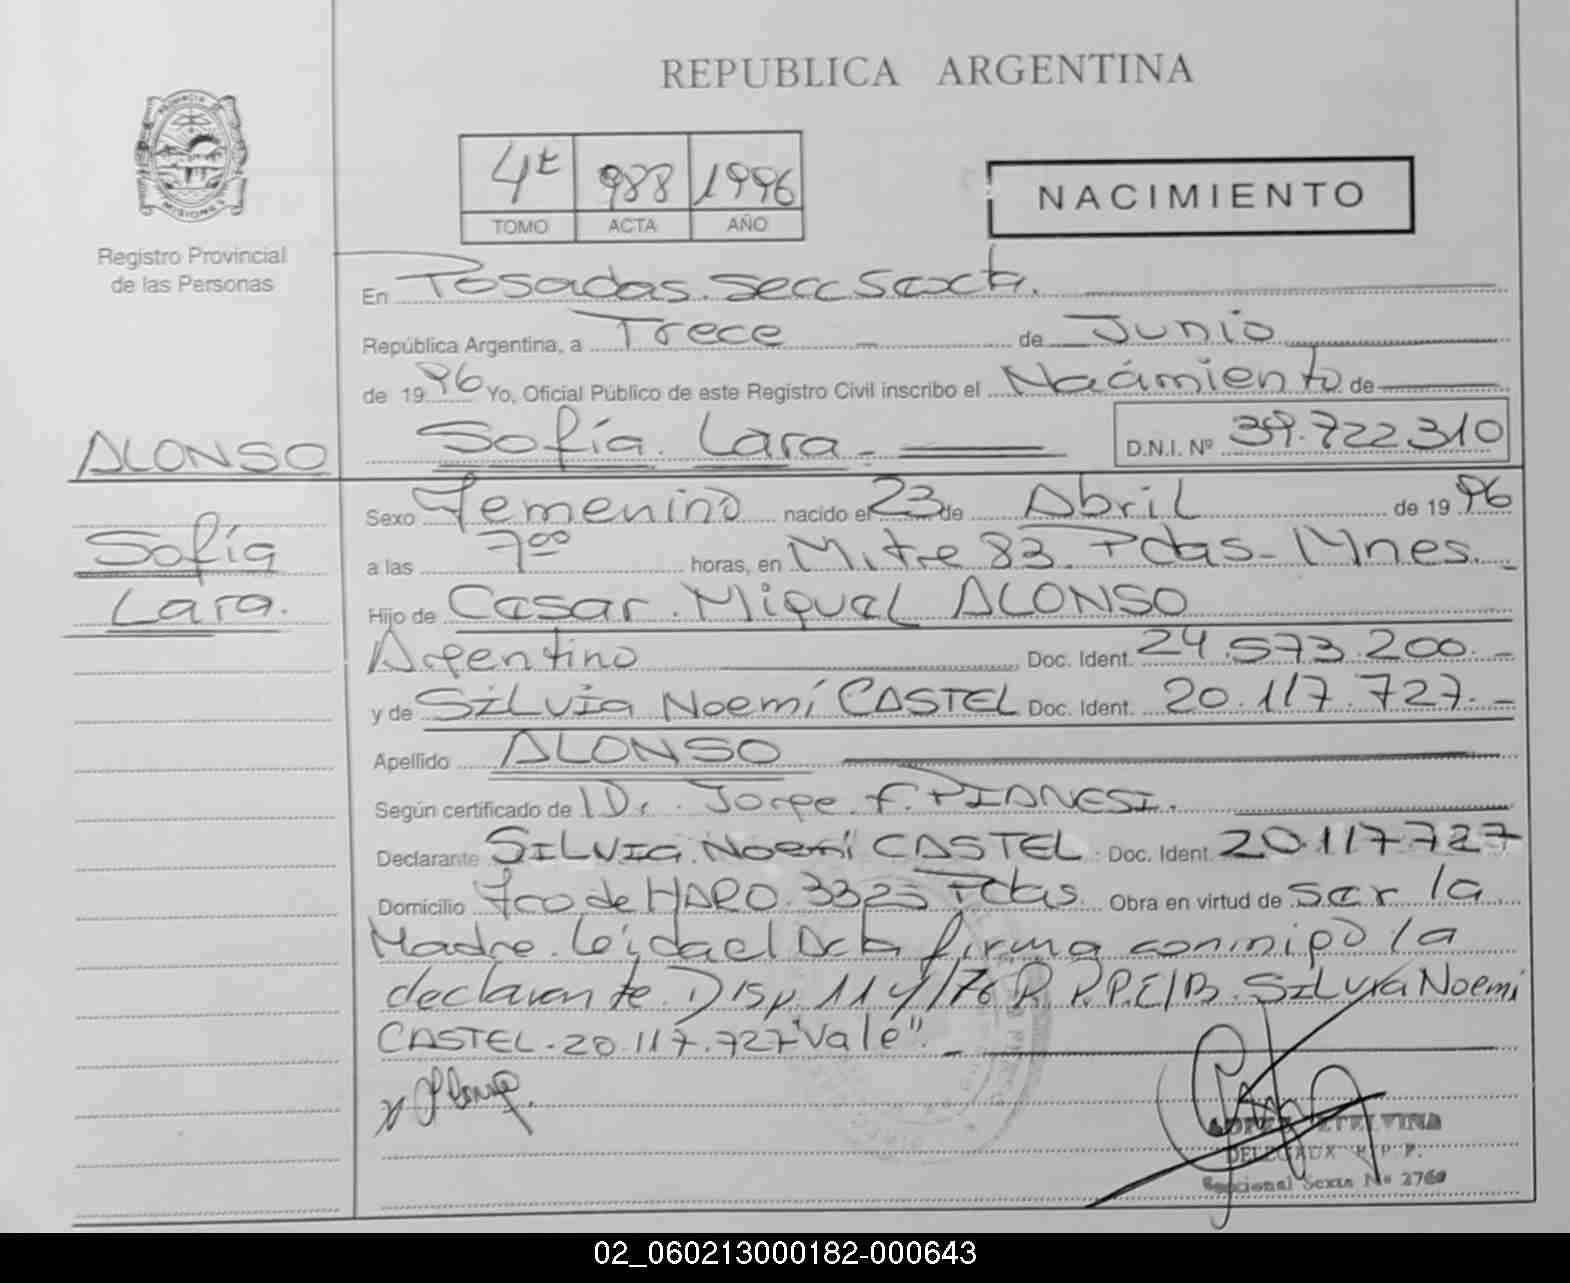 REPUBLICA ARGENTINA
PROVINCIA DE MISIONES
Registro Provincial
de las Personas
4t 988 1996
TOMO ACTA AÑO
NACIMIENTO
En Posadas. Secc Sexta.
República Argentina, a Trece de Junio
de 1996 Yo, Oficial Público de este Registro Civil inscribo el Nacimiento de
ALONSO
Sofía Lara. D.N.I. Nº 39.722.310
Sofía
Lara.
Sexo Femenino nacido el 23 de Abril de 1996
a las 7⁰⁰ horas, en Mitre 83. Pdas - Mnes.
Hijo de Cesar. Miguel ALONSO
Argentino Doc. Ident. 24.573.200.-
y de SILVIA Noemí CASTEL Doc. Ident. 20.117.727.-
Apellido ALONSO
Según certificado de Dr. Jorge F. PIANESI.
Declarante SILVIA Noemí CASTEL Doc. Ident. 20.117.727
Domicilio Fco de HARO. 3325 Pdas. Obra en virtud de ser la
Madre. leída el Acta firma conmigo la
declarante. Disp. 114/76 R.P.P.E/B. SILVIA Noemi
CASTEL. 20.117.727 "Vale".
ETELVINA
Seccional Sexta Nº
02_060213000182-000643